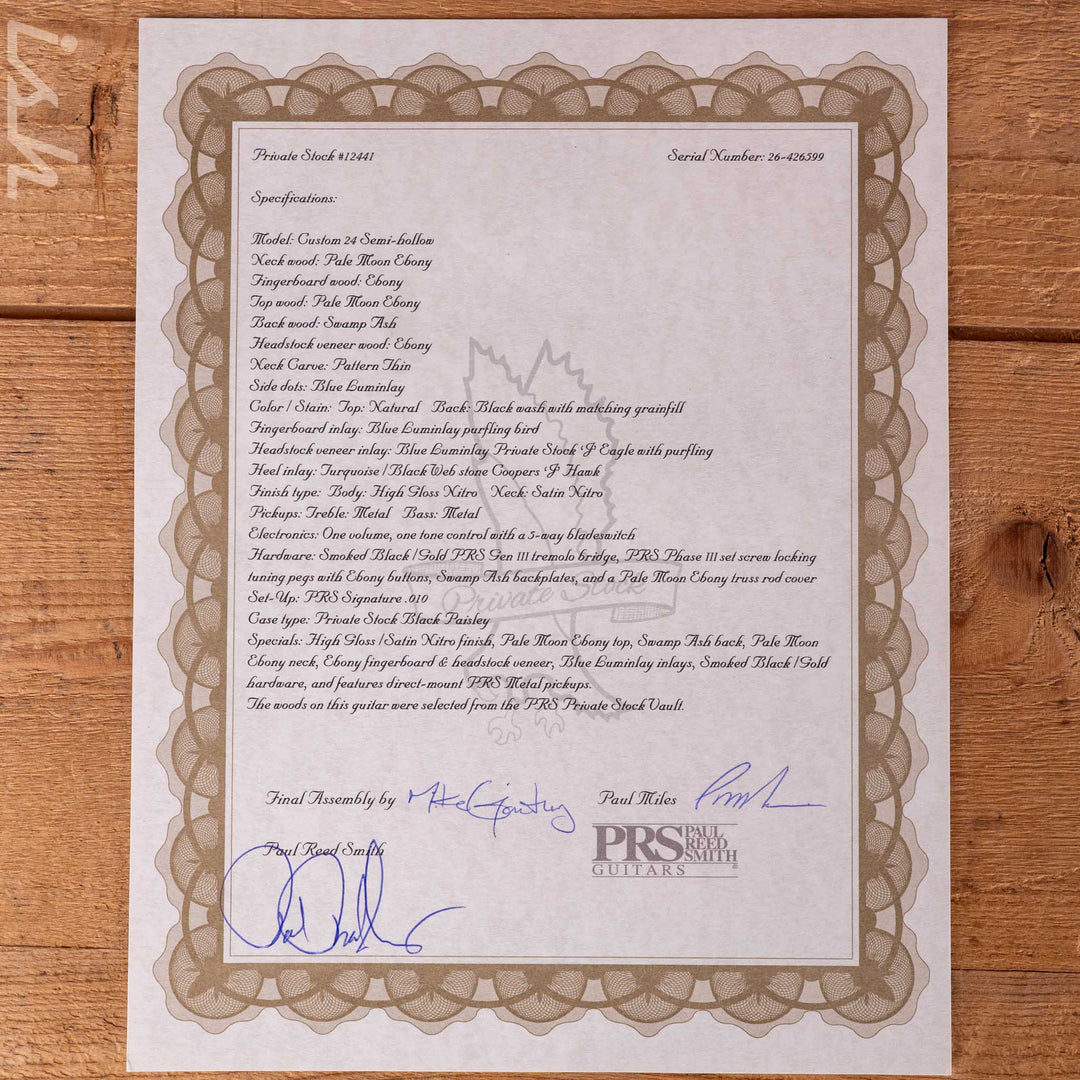 ish
Private Stock #12441 Serial Number: 26-426599
Specifications:
Model: Custom 24 Semi-hollow
Neck wood: Pale Moon Ebony
Fingerboard wood: Ebony
Top wood: Pale Moon Ebony
Back wood: Swamp Ash
Headstock veneer wood: Ebony
Neck Carve: Pattern Thin
Side dots: Blue Luminlay
Color / Stain: Top: Natural Back: Black wash with matching grainfill
Fingerboard inlay: Blue Luminlay purfling bird
Headstock veneer inlay: Blue Luminlay Private Stock 'J' Eagle with purfling
Heel inlay: Turquoise / Black Web stone Coopers 'J' Hawk
Finish type: Body: High Gloss Nitro Neck: Satin Nitro
Pickups: Treble: Metal Bass: Metal
Electronics: One volume, one tone control with a 5-way bladeswitch
Hardware: Smoked Black / Gold PRS Gen III tremolo bridge, PRS Phase III set screw locking
tuning pegs with Ebony buttons, Swamp Ash backplates, and a Pale Moon Ebony truss rod cover
Private Stock
Set-Up: PRS Signature .010
Case type: Private Stock Black Paisley
Specials: High Gloss / Satin Nitro finish, Pale Moon Ebony top, Swamp Ash back, Pale Moon
Ebony neck, Ebony fingerboard & headstock veneer, Blue Luminlay inlays, Smoked Black / Gold
hardware, and features direct-mount PRS Metal pickups.
The woods on this guitar were selected from the PRS Private Stock Vault.
Final Assembly by Mike Paul Miles
PRS PAUL REED SMITH
GUITARS
Paul Reed Smith